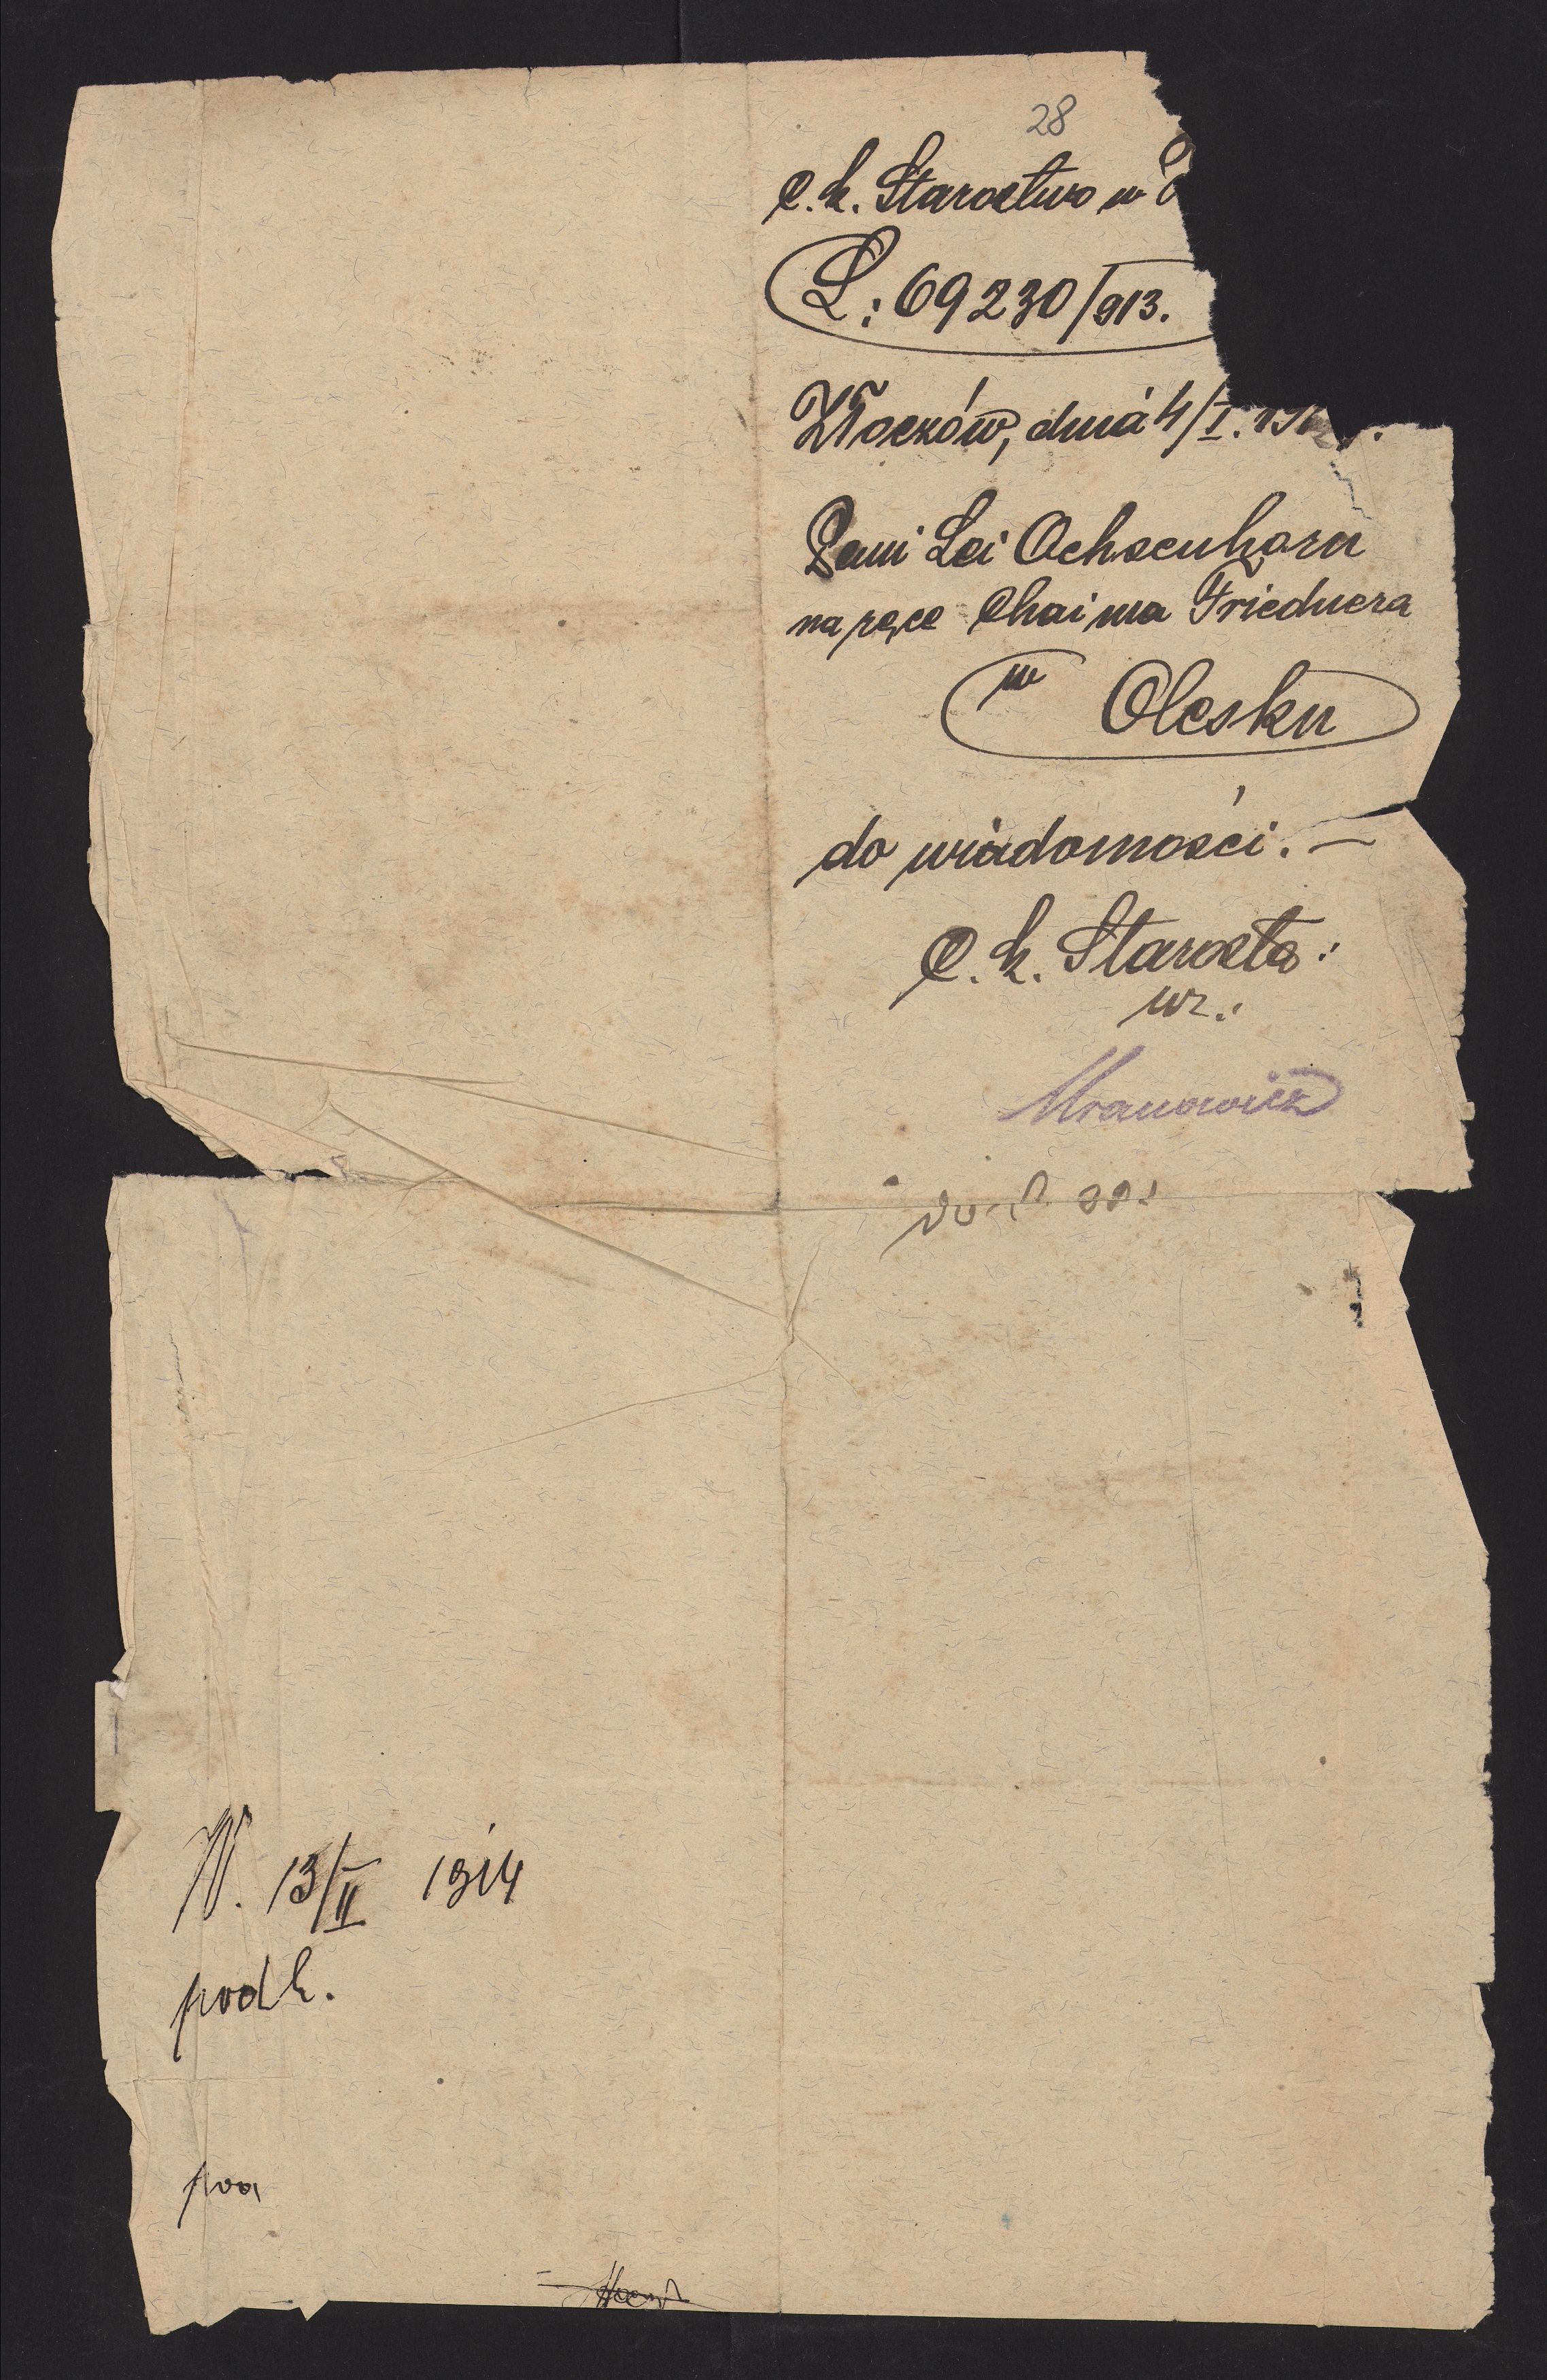 28
C. k. Starostwo w
L: 69230/913.
Złoczów, dnia 4/I. 191
Pani Lei Ochsenhorn
na ręce Chaima Friednera
w Olesku
do wiadomości. —
C. k. Starosta:
wz.:
Mranowicz
W. 13/II 1914
podk.